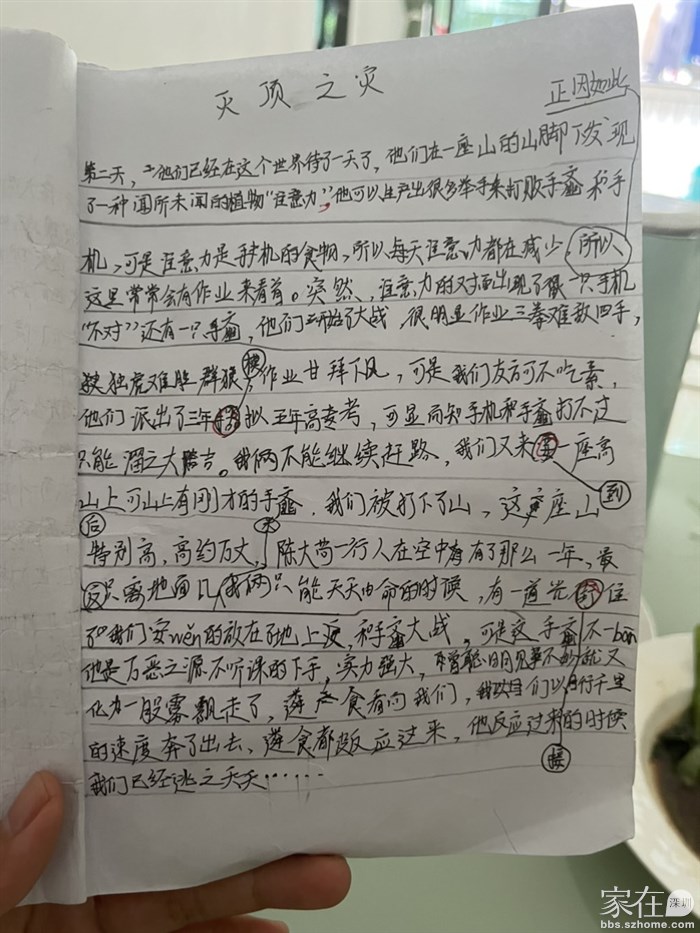 灭顶之灾
正因如此
第二天，他们已经在这个世界待了一天了，他们在一座山的山脚下发现
了一种闻所未闻的植物“注意力”，他可以生产出很多拳手来打败手 和手
机，可是注意力是手机的食物，所以每天注意力都在减少，所以
这里常常会有作业来看着。突然，注意力的对面出现了 一只手机
“不对”还有一只手 ，他们 开始了大战，很明显作业三拳难敌四手，
独虎难胜群狼，作业甘拜下风，可是我们友方可不吃素，
他们派出了三年 拟五年高 考，可 局知手机和手 打不过
只能溜之大 吉。我俩不能继续赶路，我们又来 一座高
到
山上可山上有刚才的手 ，我们被打下了山，这 座山
后
特别高，高约万丈， 陈大 一行人在空中 有了那么一年，最
只离地面几 我俩只能天天由命的时候，有一道光 住
了 我们安wěn的放在了地上 ，和手 大战，可是这手 不一bān
他是万恶之源不听课的下手，实力强大， 聪明见事不妙就又
化为一股雾飘走了， 食看向我们，我 们以 行千里
的速度奔了出去， 食都 反应过来，他反应过来的时候
候
我们已经逃之夭夭……
家在深圳
bbs.szhome.com